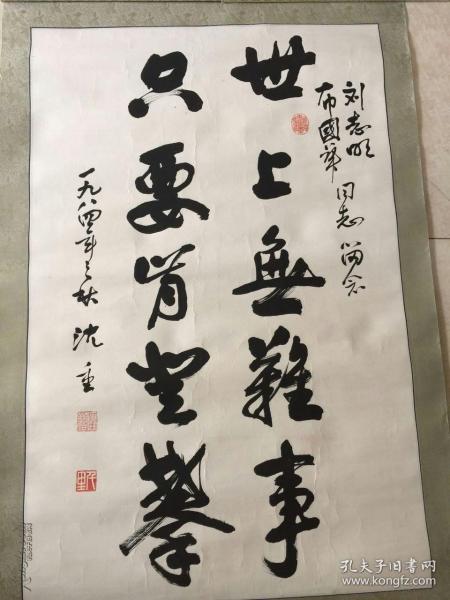 刘志明
布國華同志留念
世上無難事
只要肯登攀
一九八四年之秋 沈重
孔夫子旧书网
www.kongfz.com